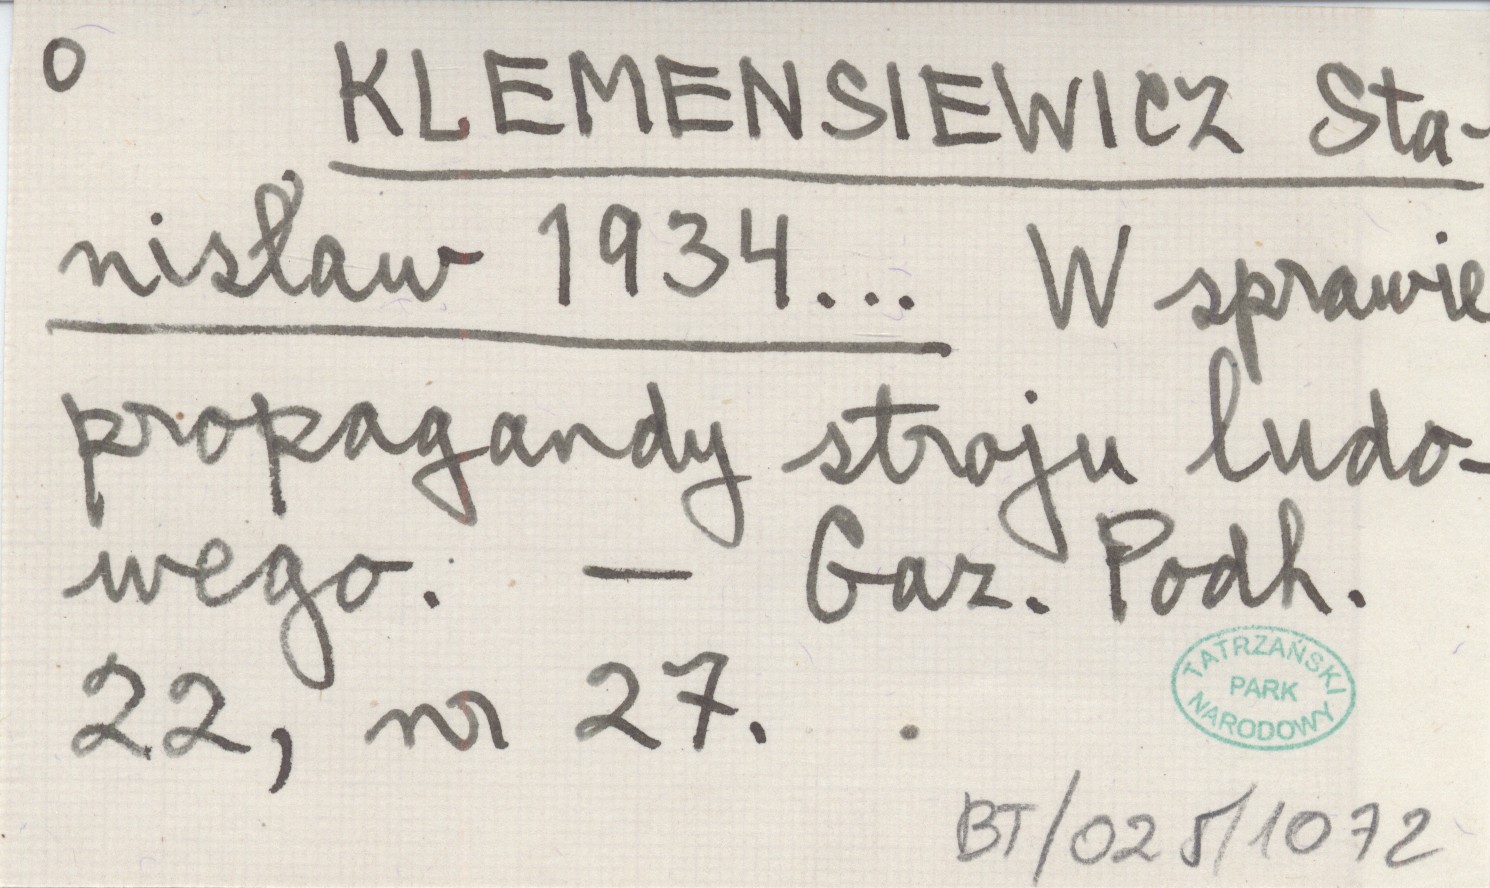 O KLEMENSIEWICZ Sta-
nisław 1934... W sprawie
propagandy stroju ludo-
wego. — Gaz. Podh.
22, nr 27.
TATRZAŃSKI
PARK
NARODOWY
BT/025/1072